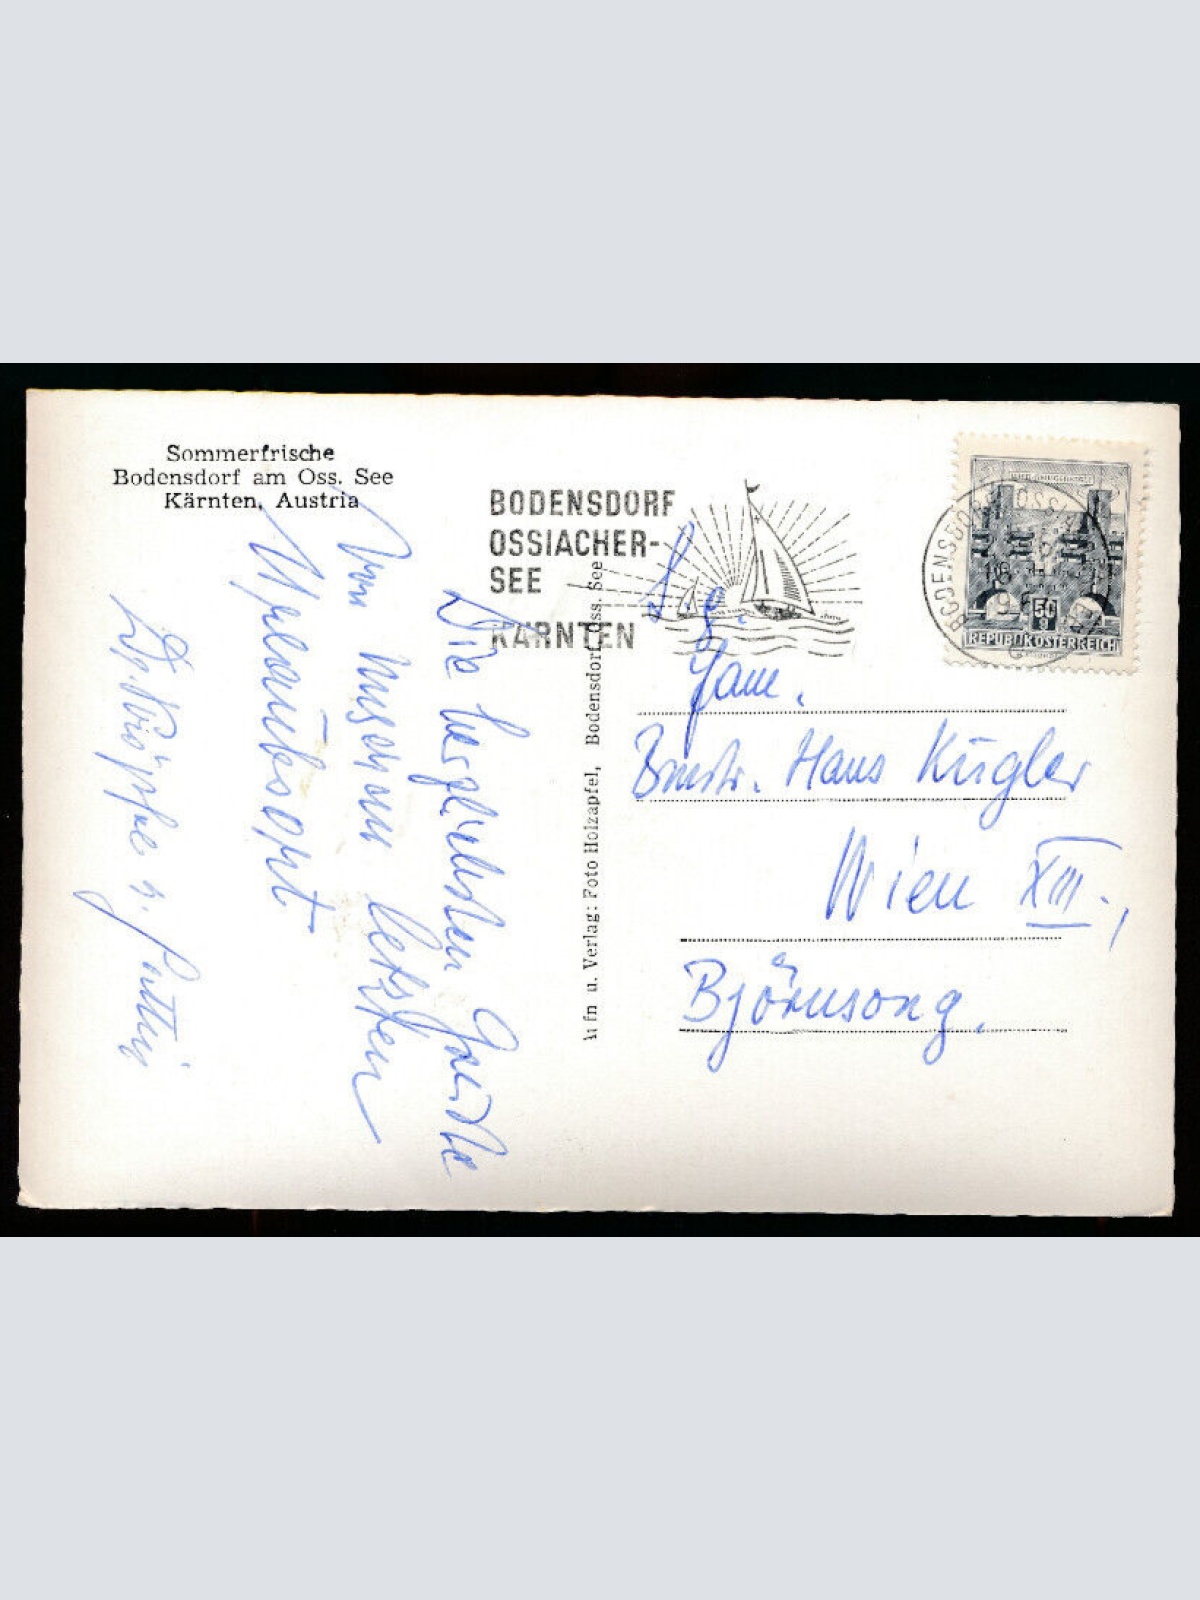 Sommerfrische
Bodensdorf am Oss. See
Kärnten, Austria
BODENSDORF
OSSIACHER-
SEE
KÄRNTEN
50 g
REPUBLIK ÖSTERREICH
Die herzlichsten Grüße
von unserem letzten
Urlaubsort
Aufn u. Verlag: Foto Holzapfel, Bodensdorf, Oss. See
Bmstr. Hans Kugler
Wien XIII.,
Björnsong.